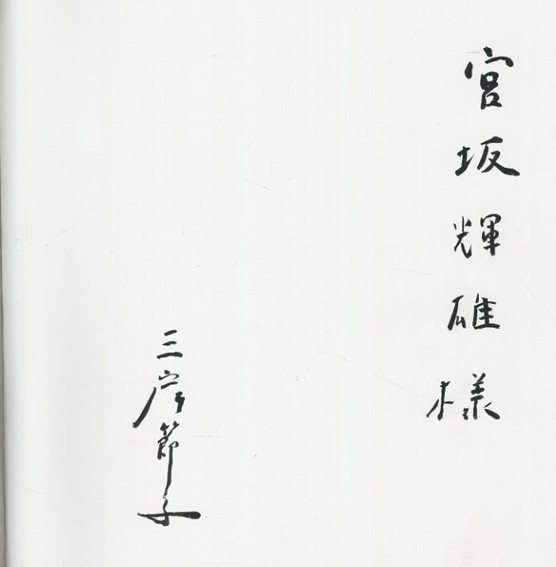 宮坂輝雄様
三岸節子